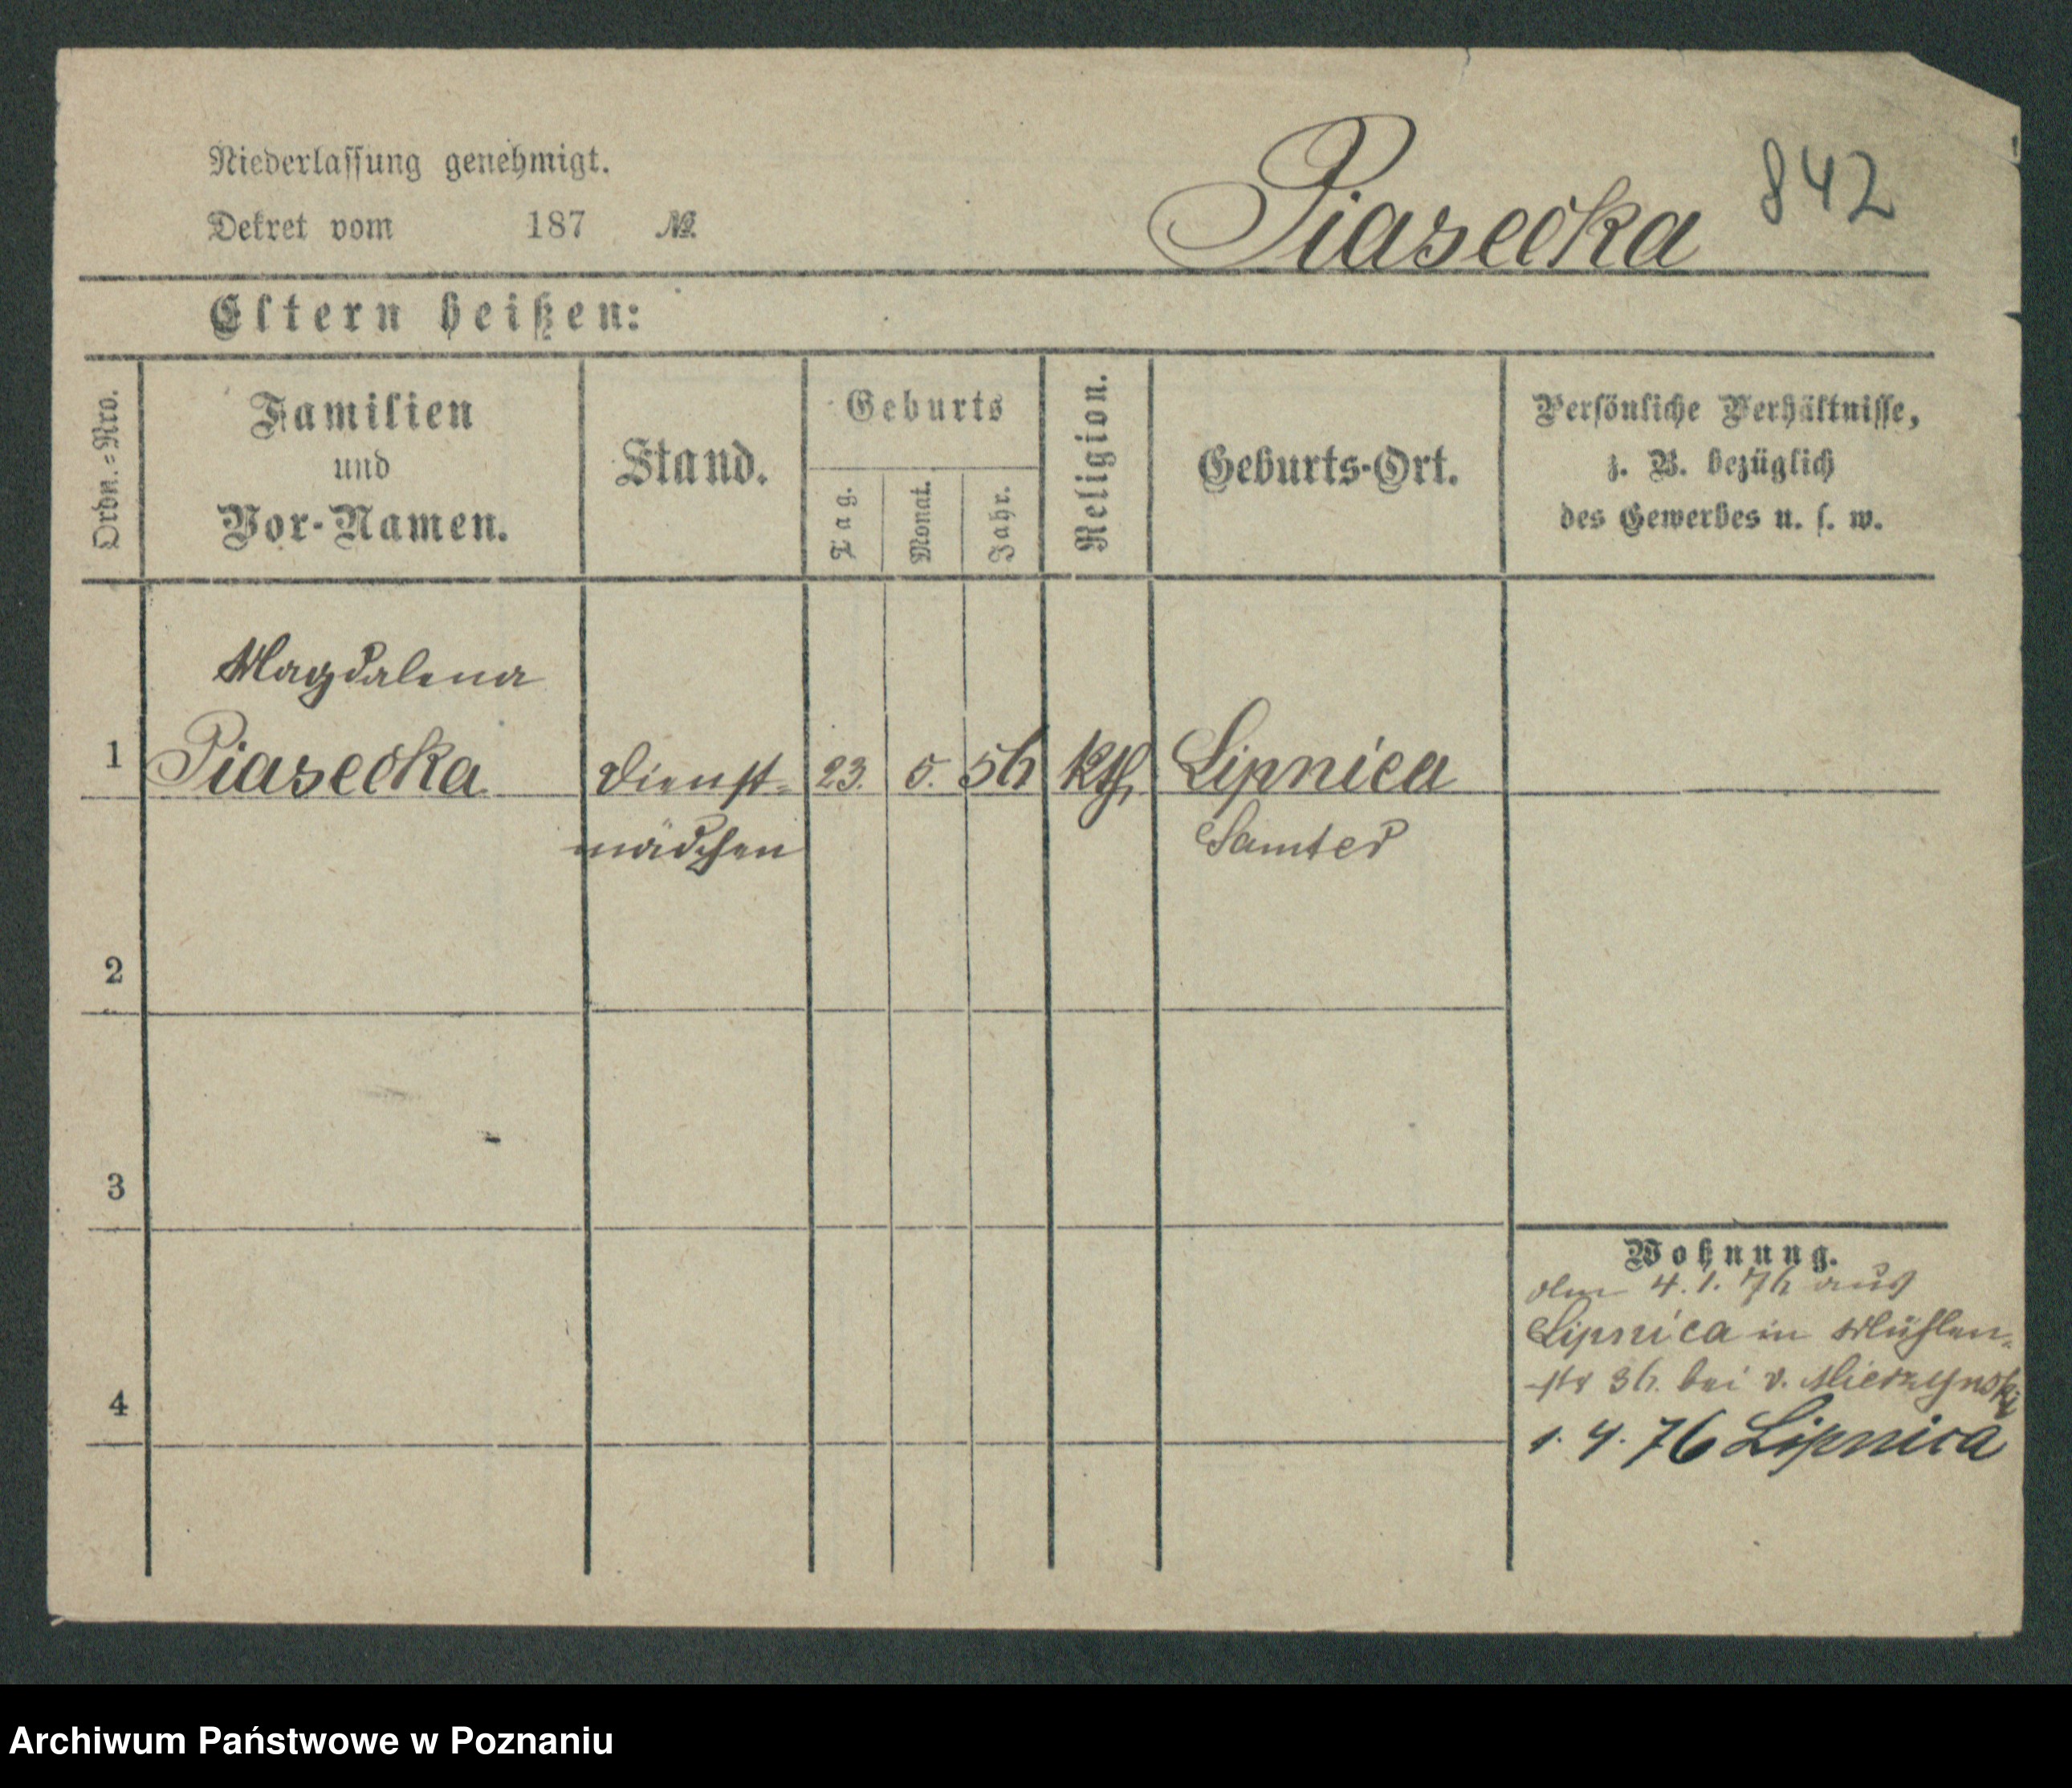 Niederlassung genehmigt.
Dekret vom 187 №
Piasecka 842
Eltern heißen:
Ordn.=Nro.
Familien
und
Vor-Namen.
Stand.
Geburts
Tag.
Monat.
Jahr.
Religion.
Geburts-Ort.
Persönliche Verhältnisse,
z. B. bezüglich
des Gewerbes u. s. w.
Magdalena
1 Piasecka Dienst= 23. 5. 56 kth. Lipnica
mädchen Samter
2
3
Wohnung.
den 4. 1. 76 aus
Lipnica in Mühlen=
str 36. bei v. Mierzynski
4
1. 4. 76 Lipnica
Archiwum Państwowe w Poznaniu